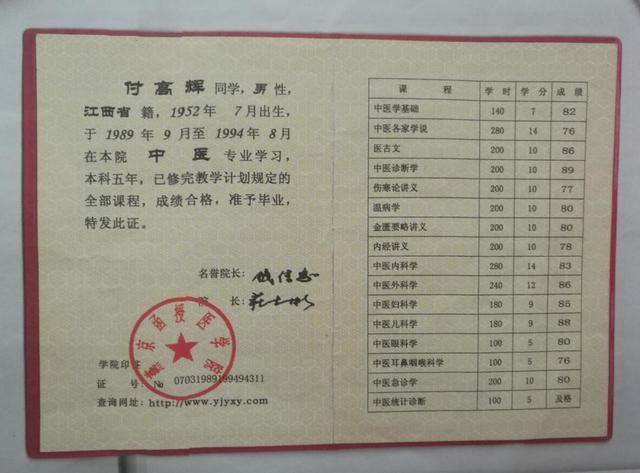 付高辉 同学，男 性，
江西省 籍，1952年 7月出生，
于 1989 年 9 月至 1994 年 8 月
在本院 中 医 专业学习，
本科五年，已修完教学计划规定的
全部课程，成绩合格，准予毕业，
特发此证。
名誉院长：
院 长：
京函授医学院
学院印
证 号：№ 07031989199494311
查询网址：http://www.yjyxy.com
课 程 学 时 学 分 成 绩
中医学基础 140 7 82
中医各家学说 280 14 76
医古文 200 10 86
中医诊断学 200 10 89
伤寒论讲义 200 10 77
温病学 200 10 80
金匮要略讲义 200 10 80
内经讲义 200 10 78
中医内科学 280 14 83
中医外科学 240 12 86
中医妇科学 180 9 85
中医儿科学 180 9 88
中医眼科学 100 5 80
中医耳鼻咽喉科学 100 5 76
中医急诊学 200 10 80
中医统计诊断 100 5 及格